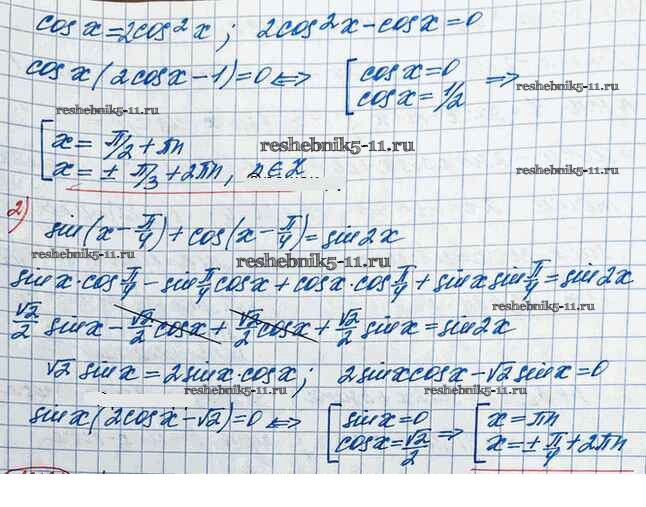 cos x = 2cos²x ; 2cos²x - cos x = 0
cos x (2cos x - 1) = 0 ⟺ [ cos x = 0 ⟹
cos x = 1/2
reshebnik5-11.ru reshebnik5-11.ru
[ x = π/2 + πn
reshebnik5-11.ru
x = ± π/3 + 2πn, n ∈ Z
2) sin(x - π/4) + cos(x - π/4) = sin 2x
reshebnik5-11.ru
sin x · cos π/4 - sin π/4 cos x + cos x · cos π/4 + sin x sin π/4 = sin 2x
reshebnik5-11.ru reshebnik5-11.ru
√2/2 sin x - √2/2 cos x + √2/2 cos x + √2/2 sin x = sin 2x
√2 sin x = 2 sin x · cos x ; 2 sin x cos x - √2 sin x = 0
reshebnik5-11.ru reshebnik5-11.ru
sin x (2cos x - √2) = 0 ⟺ [ sin x = 0 ⟹ [ x = πn
cos x = √2/2 x = ± π/4 + 2πn